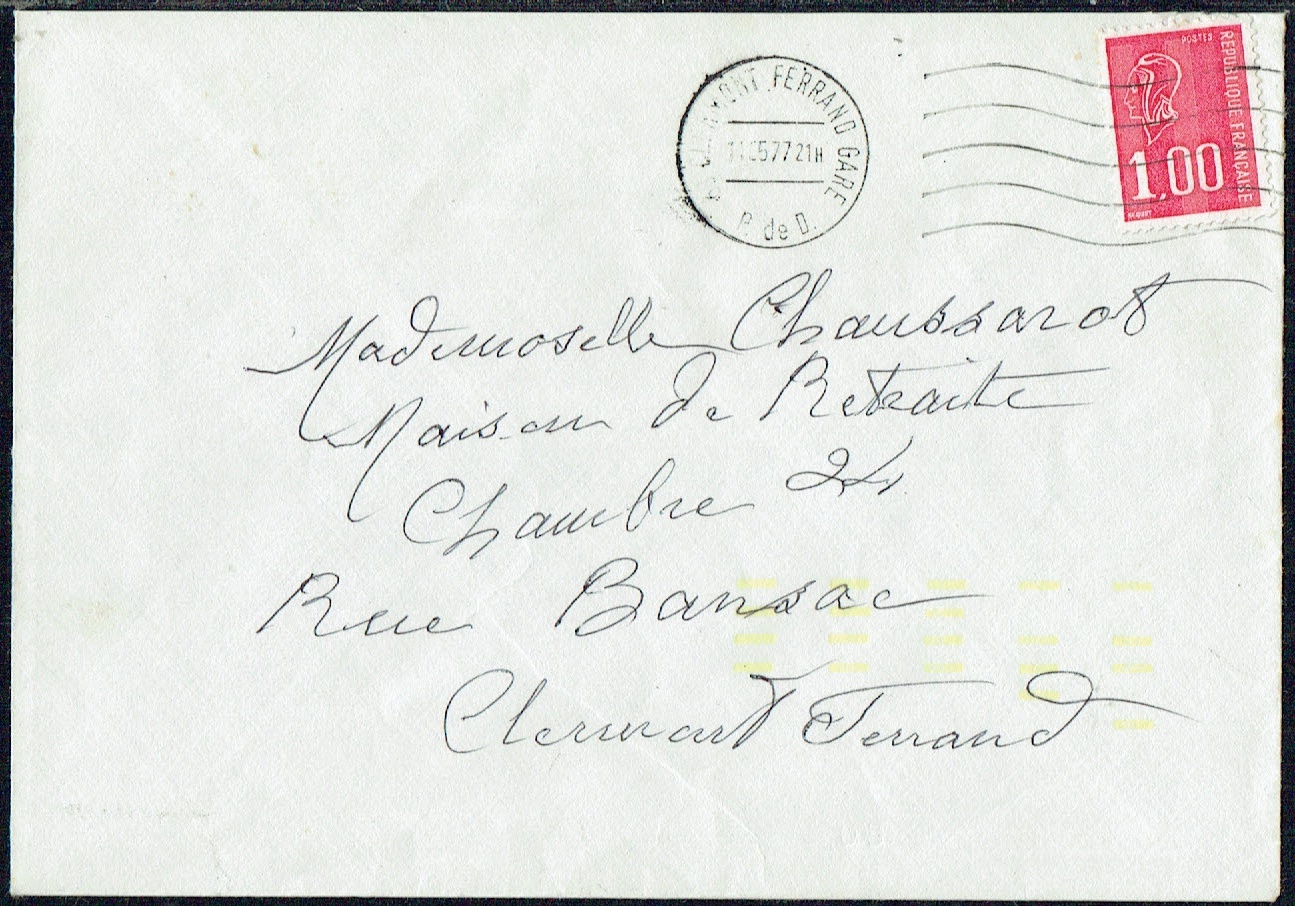 CLERMONT FERRAND GARE
5 77 21H
P. de D.
POSTES
REPUBLIQUE FRANÇAISE
1,00
Mademoiselle Chaussarot
Maison de Retraite
Chambre 24
Rue Bansac
Clermont Ferrand